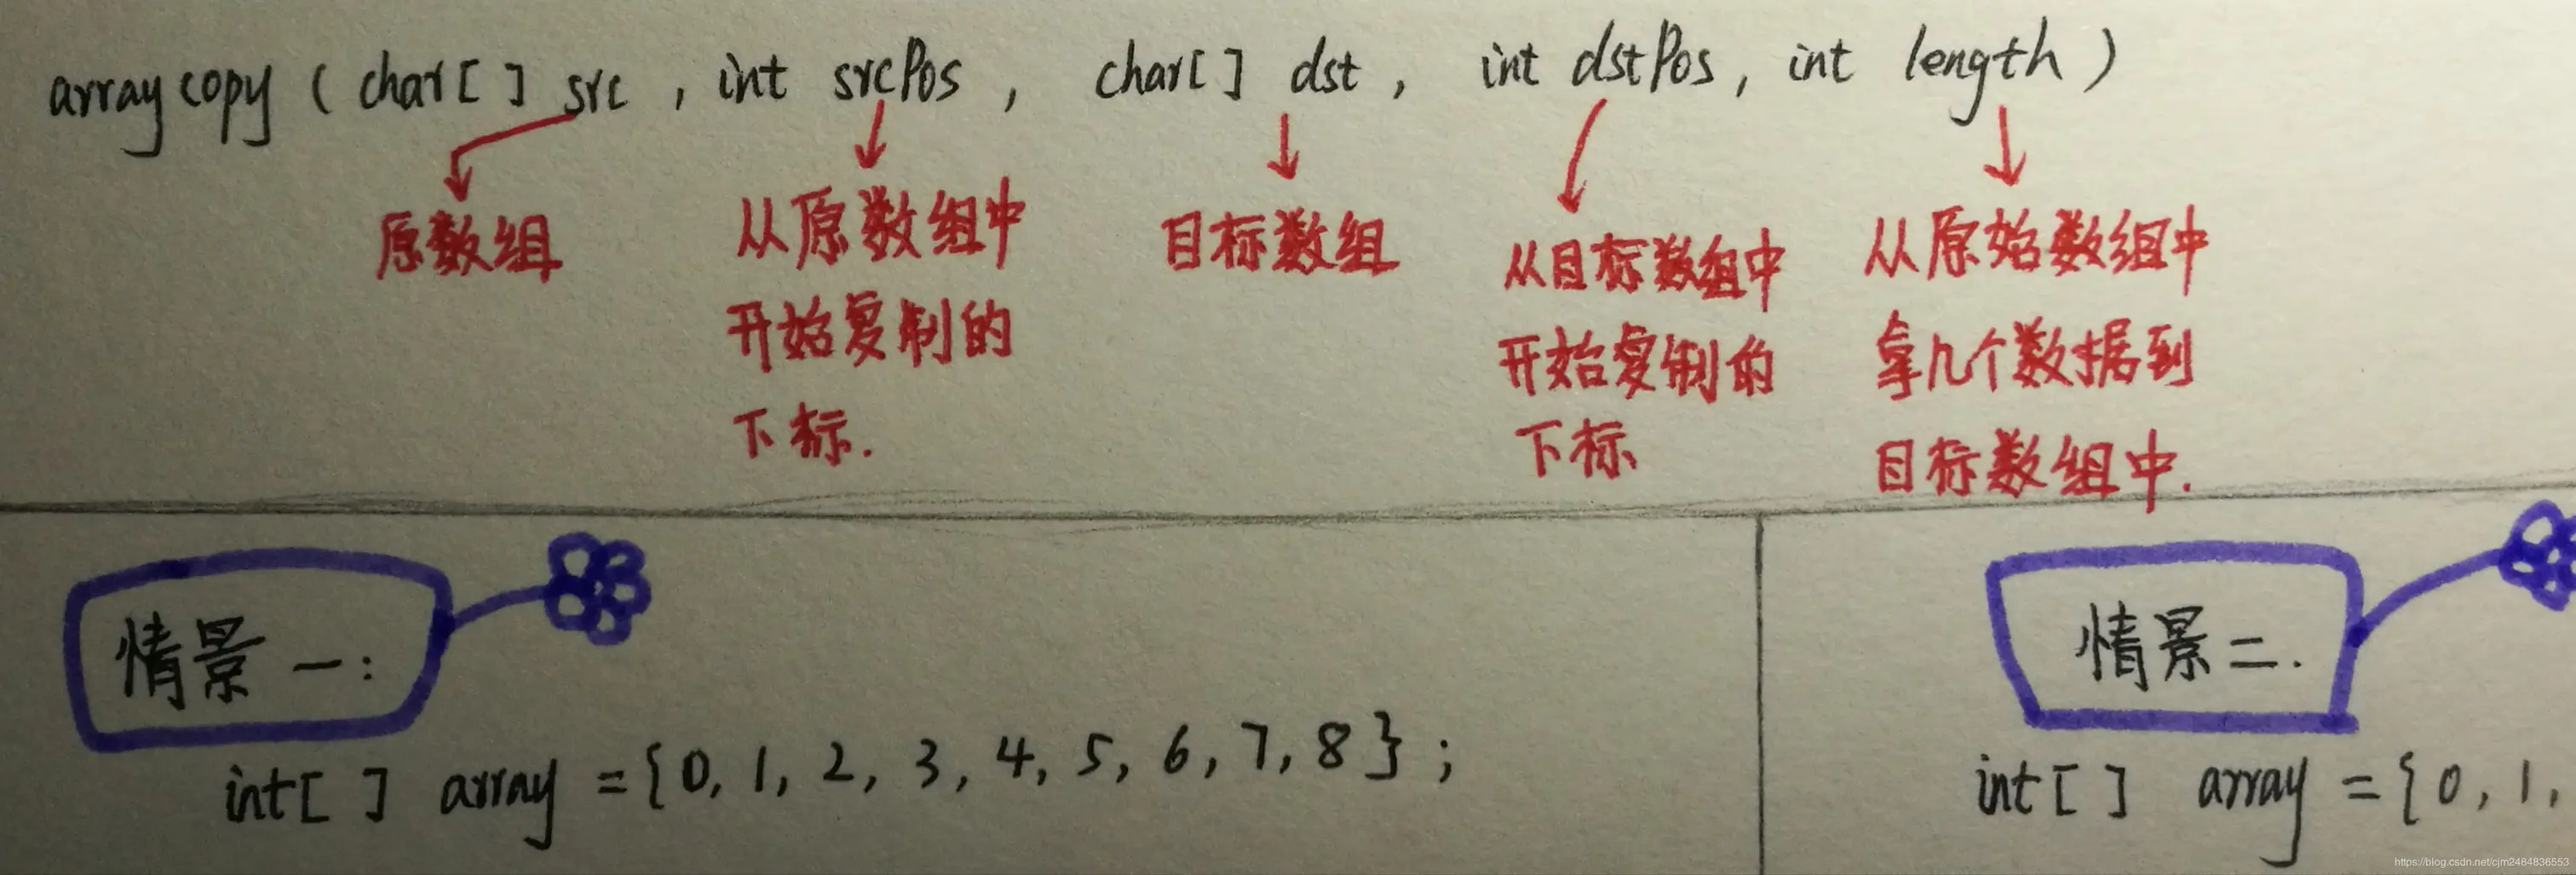 arraycopy ( char[ ] src , int srcPos , char[ ] dst , int dstPos , int length )
原数组
从原数组中
开始复制的
下标.
目标数组
从目标数组中
开始复制的
下标
从原始数组中
拿几个数据到
目标数组中.
情景一:
int[ ] array = {0, 1, 2, 3, 4, 5, 6, 7, 8 } ;
情景二.
int[ ] array = {0, 1,
https://blog.csdn.net/cjm2484836553